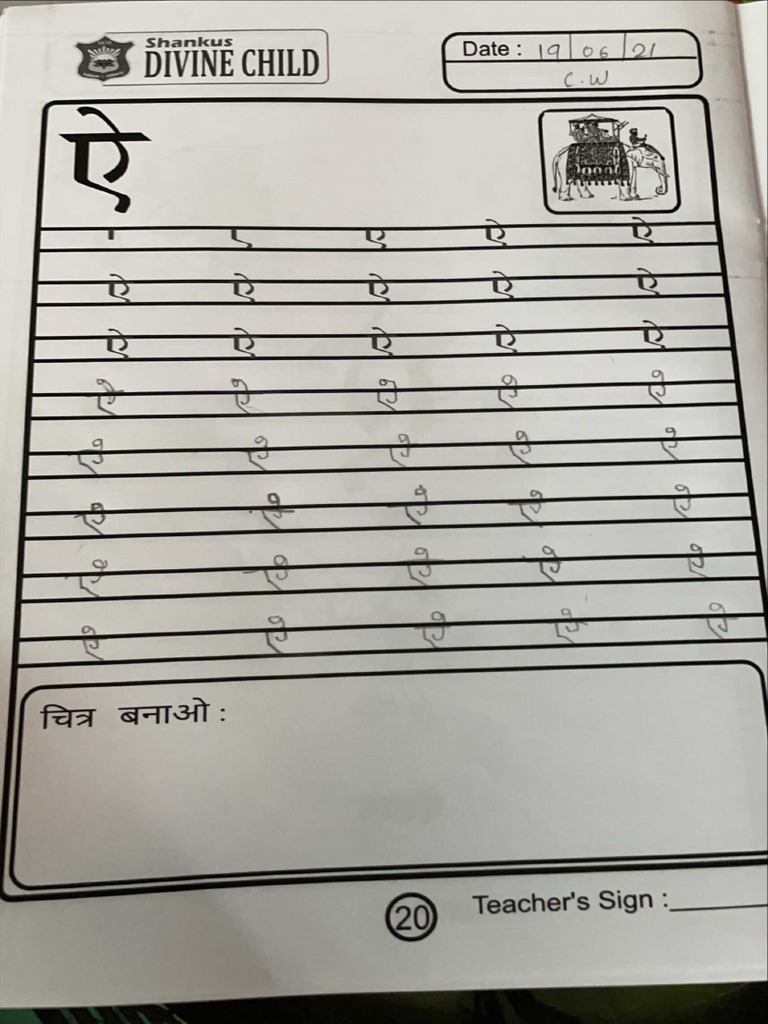 Shankus
DIVINE CHILD
Date : 19 | 06 | 21
C.W
ऐ
ऐ ऐ
ऐ ऐ ऐ ऐ ऐ
ऐ ऐ ऐ ऐ ऐ
ऐ ऐ ऐ ऐ ऐ
ऐ ऐ ऐ ऐ ऐ
ऐ ऐ ऐ ऐ ऐ
ऐ ऐ ऐ ऐ ऐ
ऐ ऐ ऐ ऐ ऐ
चित्र बनाओ :
20
Teacher's Sign :